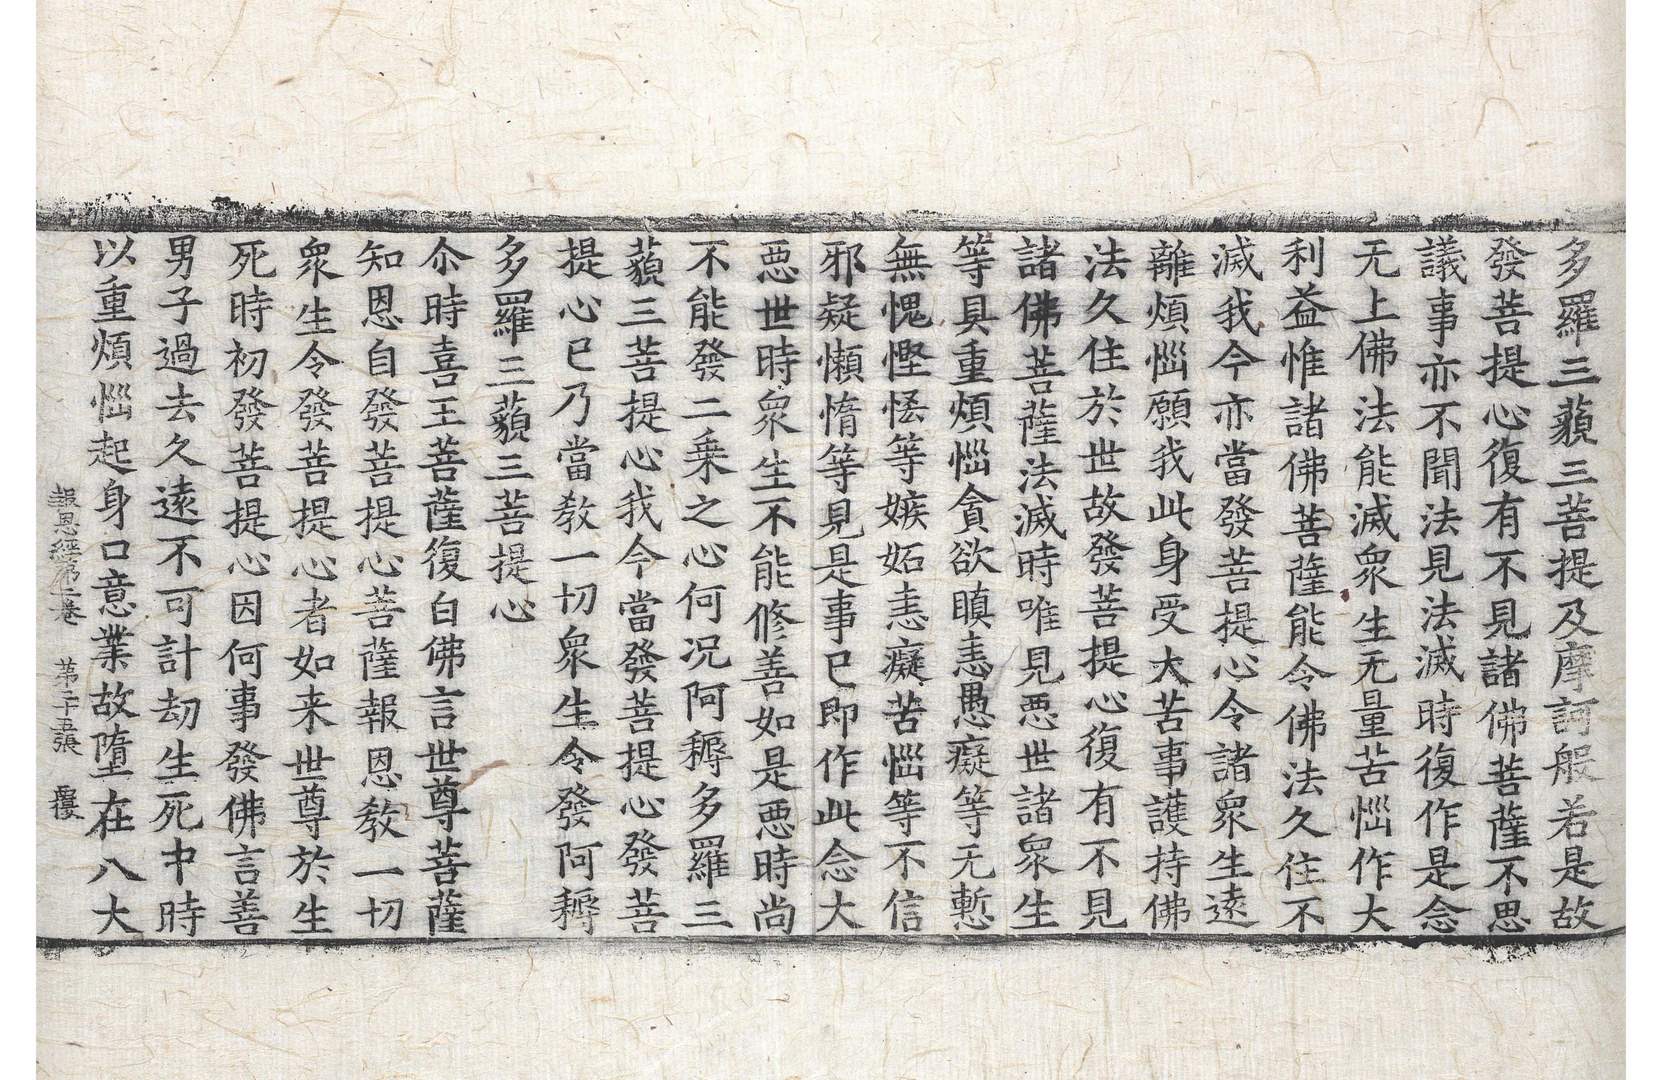 多羅三藐三菩提及摩訶般若是故
發菩提心復有不見諸佛菩薩不思
議事亦不聞法見法滅時復作是念
无上佛法能滅衆生无量苦惱作大
利益惟諸佛菩薩能令佛法久住不
滅我今亦當發菩提心令諸衆生遠
離煩惱願我此身受大苦事護持佛
法久住於世故發菩提心復有不見
諸佛菩薩法滅時唯見惡世諸衆生
等具重煩惱貪欲瞋恚愚癡等无慙
無愧慳悋等嫉妬恚癡苦惱等不信
邪疑懶惰等見是事已即作此念大
惡世時衆生不能修善如是惡時尚
不能發二乗之心何况阿耨多羅三
藐三菩提心我今當發菩提心發菩
提心已乃當教一切衆生令發阿耨
多羅三藐三菩提心
尒時喜王菩薩復白佛言世尊菩薩
知恩自發菩提心菩薩報恩教一切
衆生令發菩提心者如来世尊於生
死時初發菩提心因何事發佛言善
男子過去久遠不可計劫生死中時
以重煩惱起身口意業故墮在八大
報恩經第二卷 第二十五張